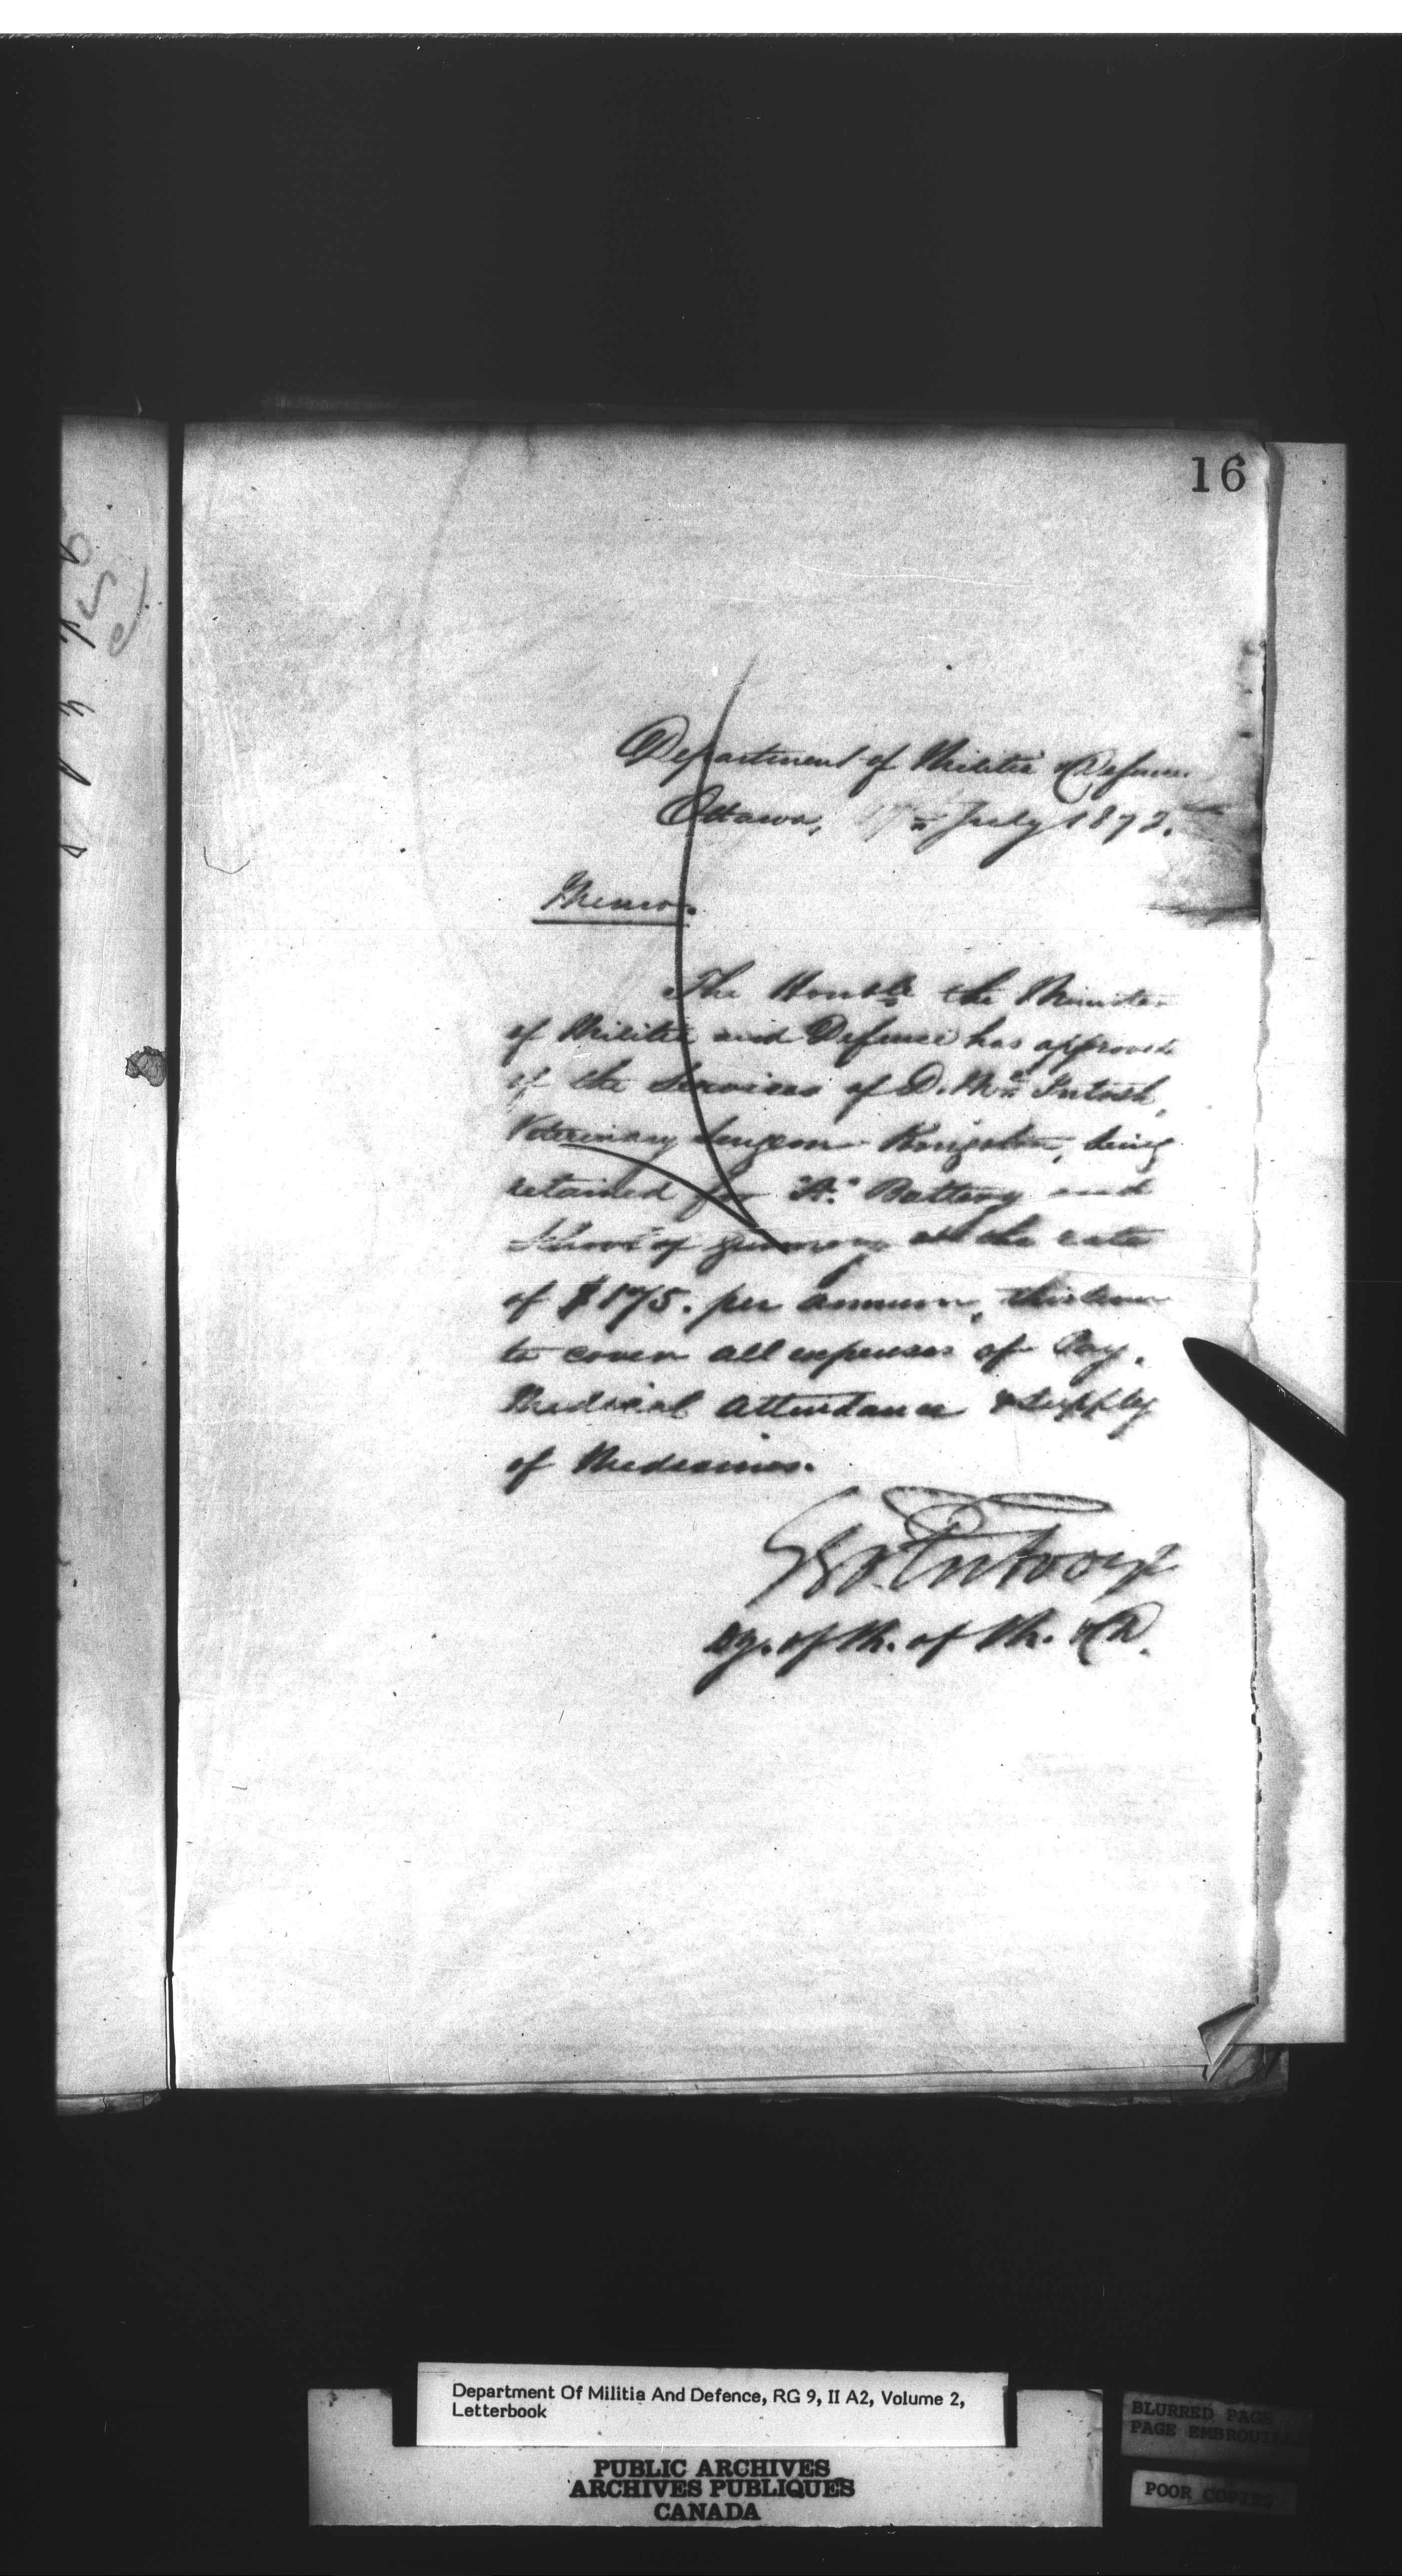 16
Department of Militia & Defence
Ottawa, 17th July 1872.
Memo.
The Honble the Minister
of Militia and Defence has approved
of the Services of D. Mc Intosh,
Veterinary Surgeon Kingston, being
retained for "A." Battery and
School of Gunnery at the rate
of $175. per annum,
to cover all expenses of Pay,
Medical Attendance & Supply
of Medicines.
Dy. of M. of M. & D.
Department Of Militia And Defence, RG 9, II A2, Volume 2,
Letterbook
PUBLIC ARCHIVES
ARCHIVES PUBLIQUES
CANADA
BLURRED PAGE
PAGE EMBROUILLEE
POOR COPIES